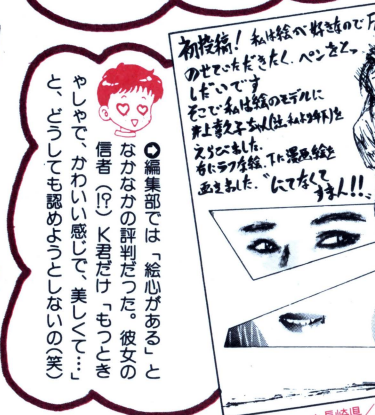 初投稿！私は絵が好きなのでF
のせていただきたく、ペンをとっ
しだいです
そこで私は絵のモデルに
井上喜久子ちゃん(注、私より年下)を
えらびました。
右にラフな絵、下に漫画絵を
画きました。"にてなくて
すまん!!
➲編集部では「絵心がある」と
なかなかの評判だった。彼女の
信者（!?）K君だけ「もっとき
ゃしゃで、かわいい感じで、美しくて…」
と、どうしても認めようとしないの（笑）
長崎県/